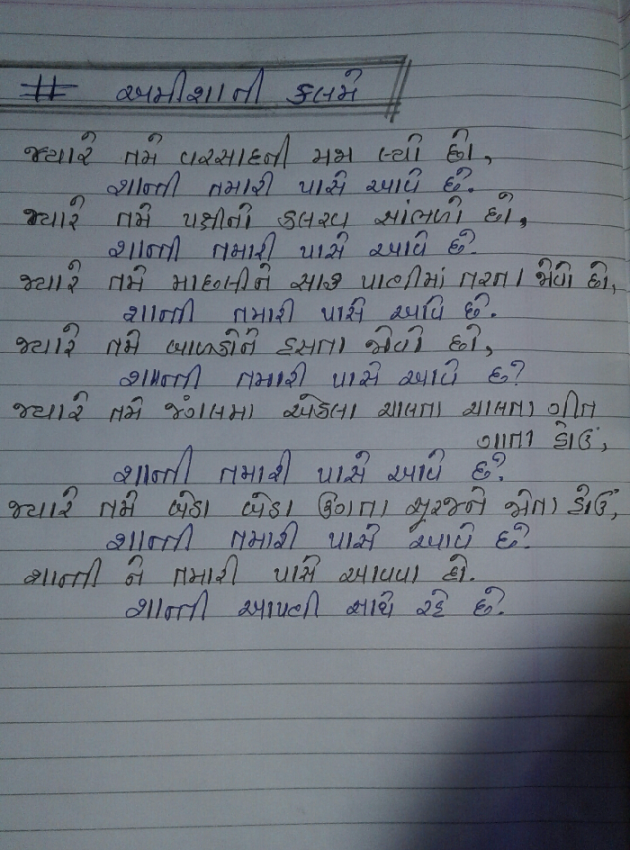 # અમીશાની કલમે
જ્યારે તમે વરસાદની મજા લ્યો છો,
શાન્તી તમારી પાસે આવે છે.
જ્યારે તમે પક્ષીનો કલરવ સાંભળો છો,
શાન્તી તમારી પાસે આવે છે.
જ્યારે તમે માછલીને સાફ પાણીમાં તરતા જોવો છો,
શાન્તી તમારી પાસે આવે છે.
જ્યારે તમે બાળકોને હસતા જોવો છો,
શાન્તી તમારી પાસે આવે છે?
જ્યારે તમે જંગલમા એકલા ચાલતા ચાલતા ગીત
ગાતા હોઉં,
શાન્તી તમારી પાસે આવે છે?
જ્યારે તમે બેઠા બેઠા ઉગતા સૂરજને જોતા હોઉં,
શાન્તી તમારી પાસે આવે છે?
શાન્તી ને તમારી પાસે આવવા દો.
શાન્તી આપણી સાથે રહે છે.